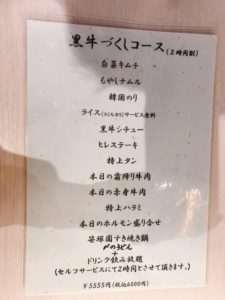 黒牛づくしコース(2時間制)
白菜キムチ
もやしナムル
韓国のり
ライス(コシヒカリ)サービス食料
黒牛シチュー
ヒレステーキ
特上タン
本日の霜降り牛肉
本日の赤身牛肉
特上ハラミ
本日のホルモン盛り合せ
すき焼き鍋
〆のうどん
+
ドリンク飲み放題
(セルフサービスにて2時間とさせて頂きます。)
¥5555円(税込6000円)